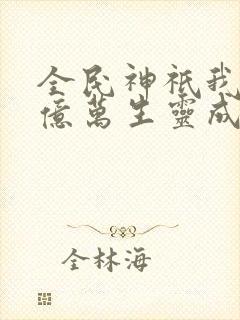 全民神祇我
億萬生靈成
全林海